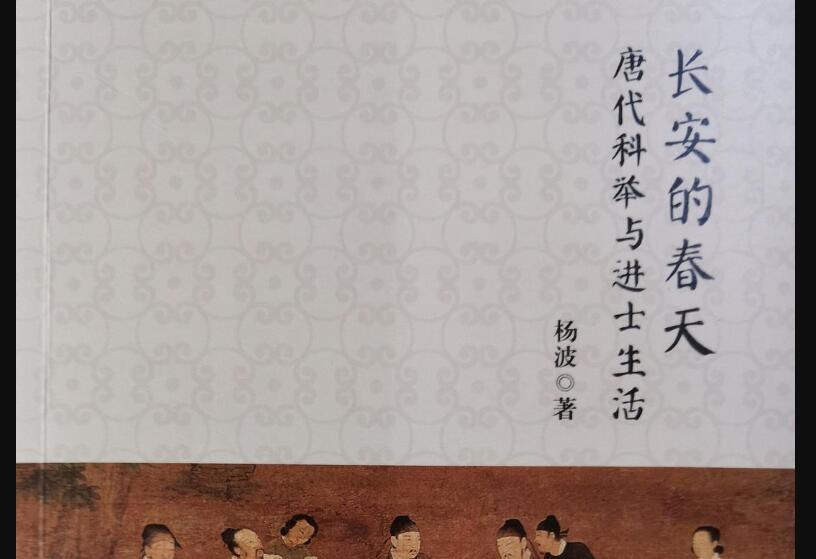 长安的春天
唐代科举与进士生活
杨波◎著